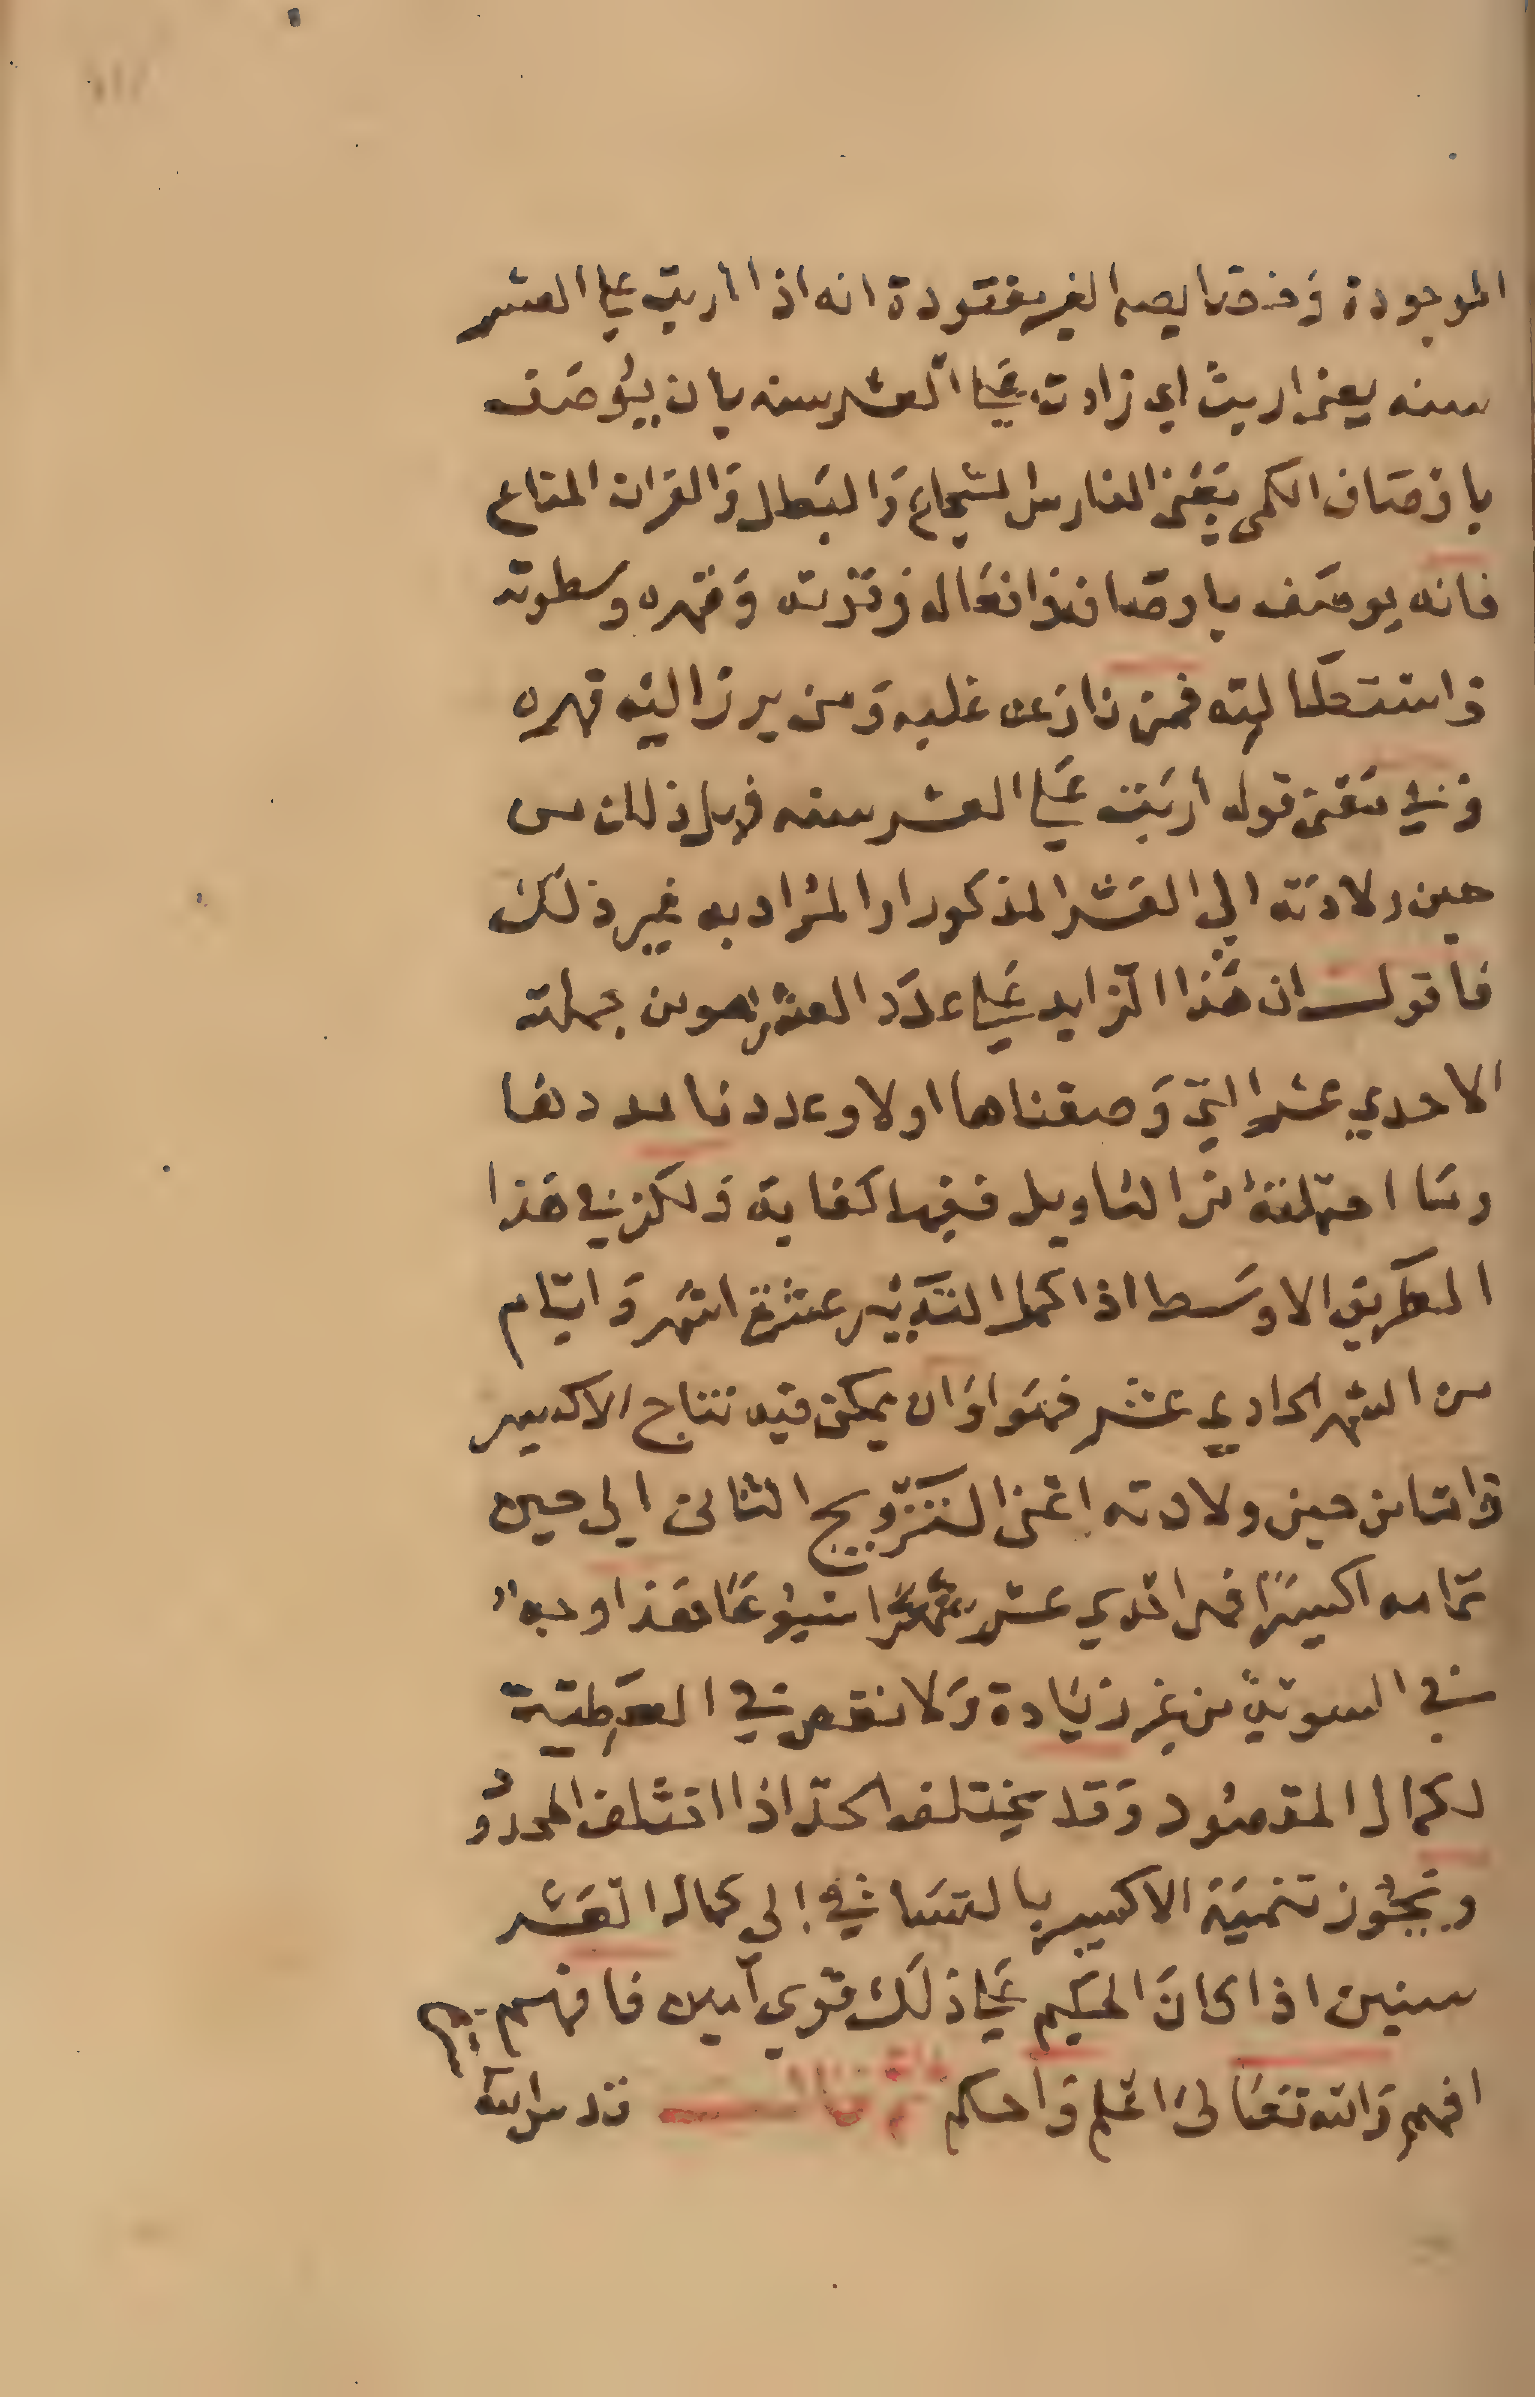 الموجودة وخصايصه الغير مفقودة انه اذا اربت علي العشر
سنه يعني اربت اي زادت علي العشر سنه بان يوصف
باوصاف الكمي يعني الفارس الشجاع والبطل والقران المتاع
فانه يوصف باوصاف وافعاله وقوته وقهره وسطوته
واستحالته فمن نازعه غلبه ومن برز اليه قهره
وفي معني قوله اربت علي العشر سنه فهل ذلك من
حين ولادته الي العشر المذكور او المراد به غير ذلك
فاقول ان هذا الزايد علي عدد العشر هو من جملة
الاحدي عشر التي وصفناها اولا وعددنا عددها
وما احتملته من التاويل ففيها كفاية ولكن في هذا
الطريق الاوسط اذا كمل التدبير عشرة اشهر وايام
من الشهر الحادي عشر فهو اوان يمكن فيه نتاج الاكسير
واما من حين ولادته اعني التزويج الثاني الي حين
تمامه اكسيرا فهي احدي عشر اسبوعا هذا وجه
في السوية من غير زيادة ولا نقص في العطية
لكمال المقصود وقد يختلف الحد اذا اختلف المحدود
ويجوز تنمية الاكسير بالتساقي الي كمال العشر
سنين اذا كان الحكيم علي ذلك قوي امين فافهم
افهم والله تعالي اعلم واحكم ثم قال قدس الله